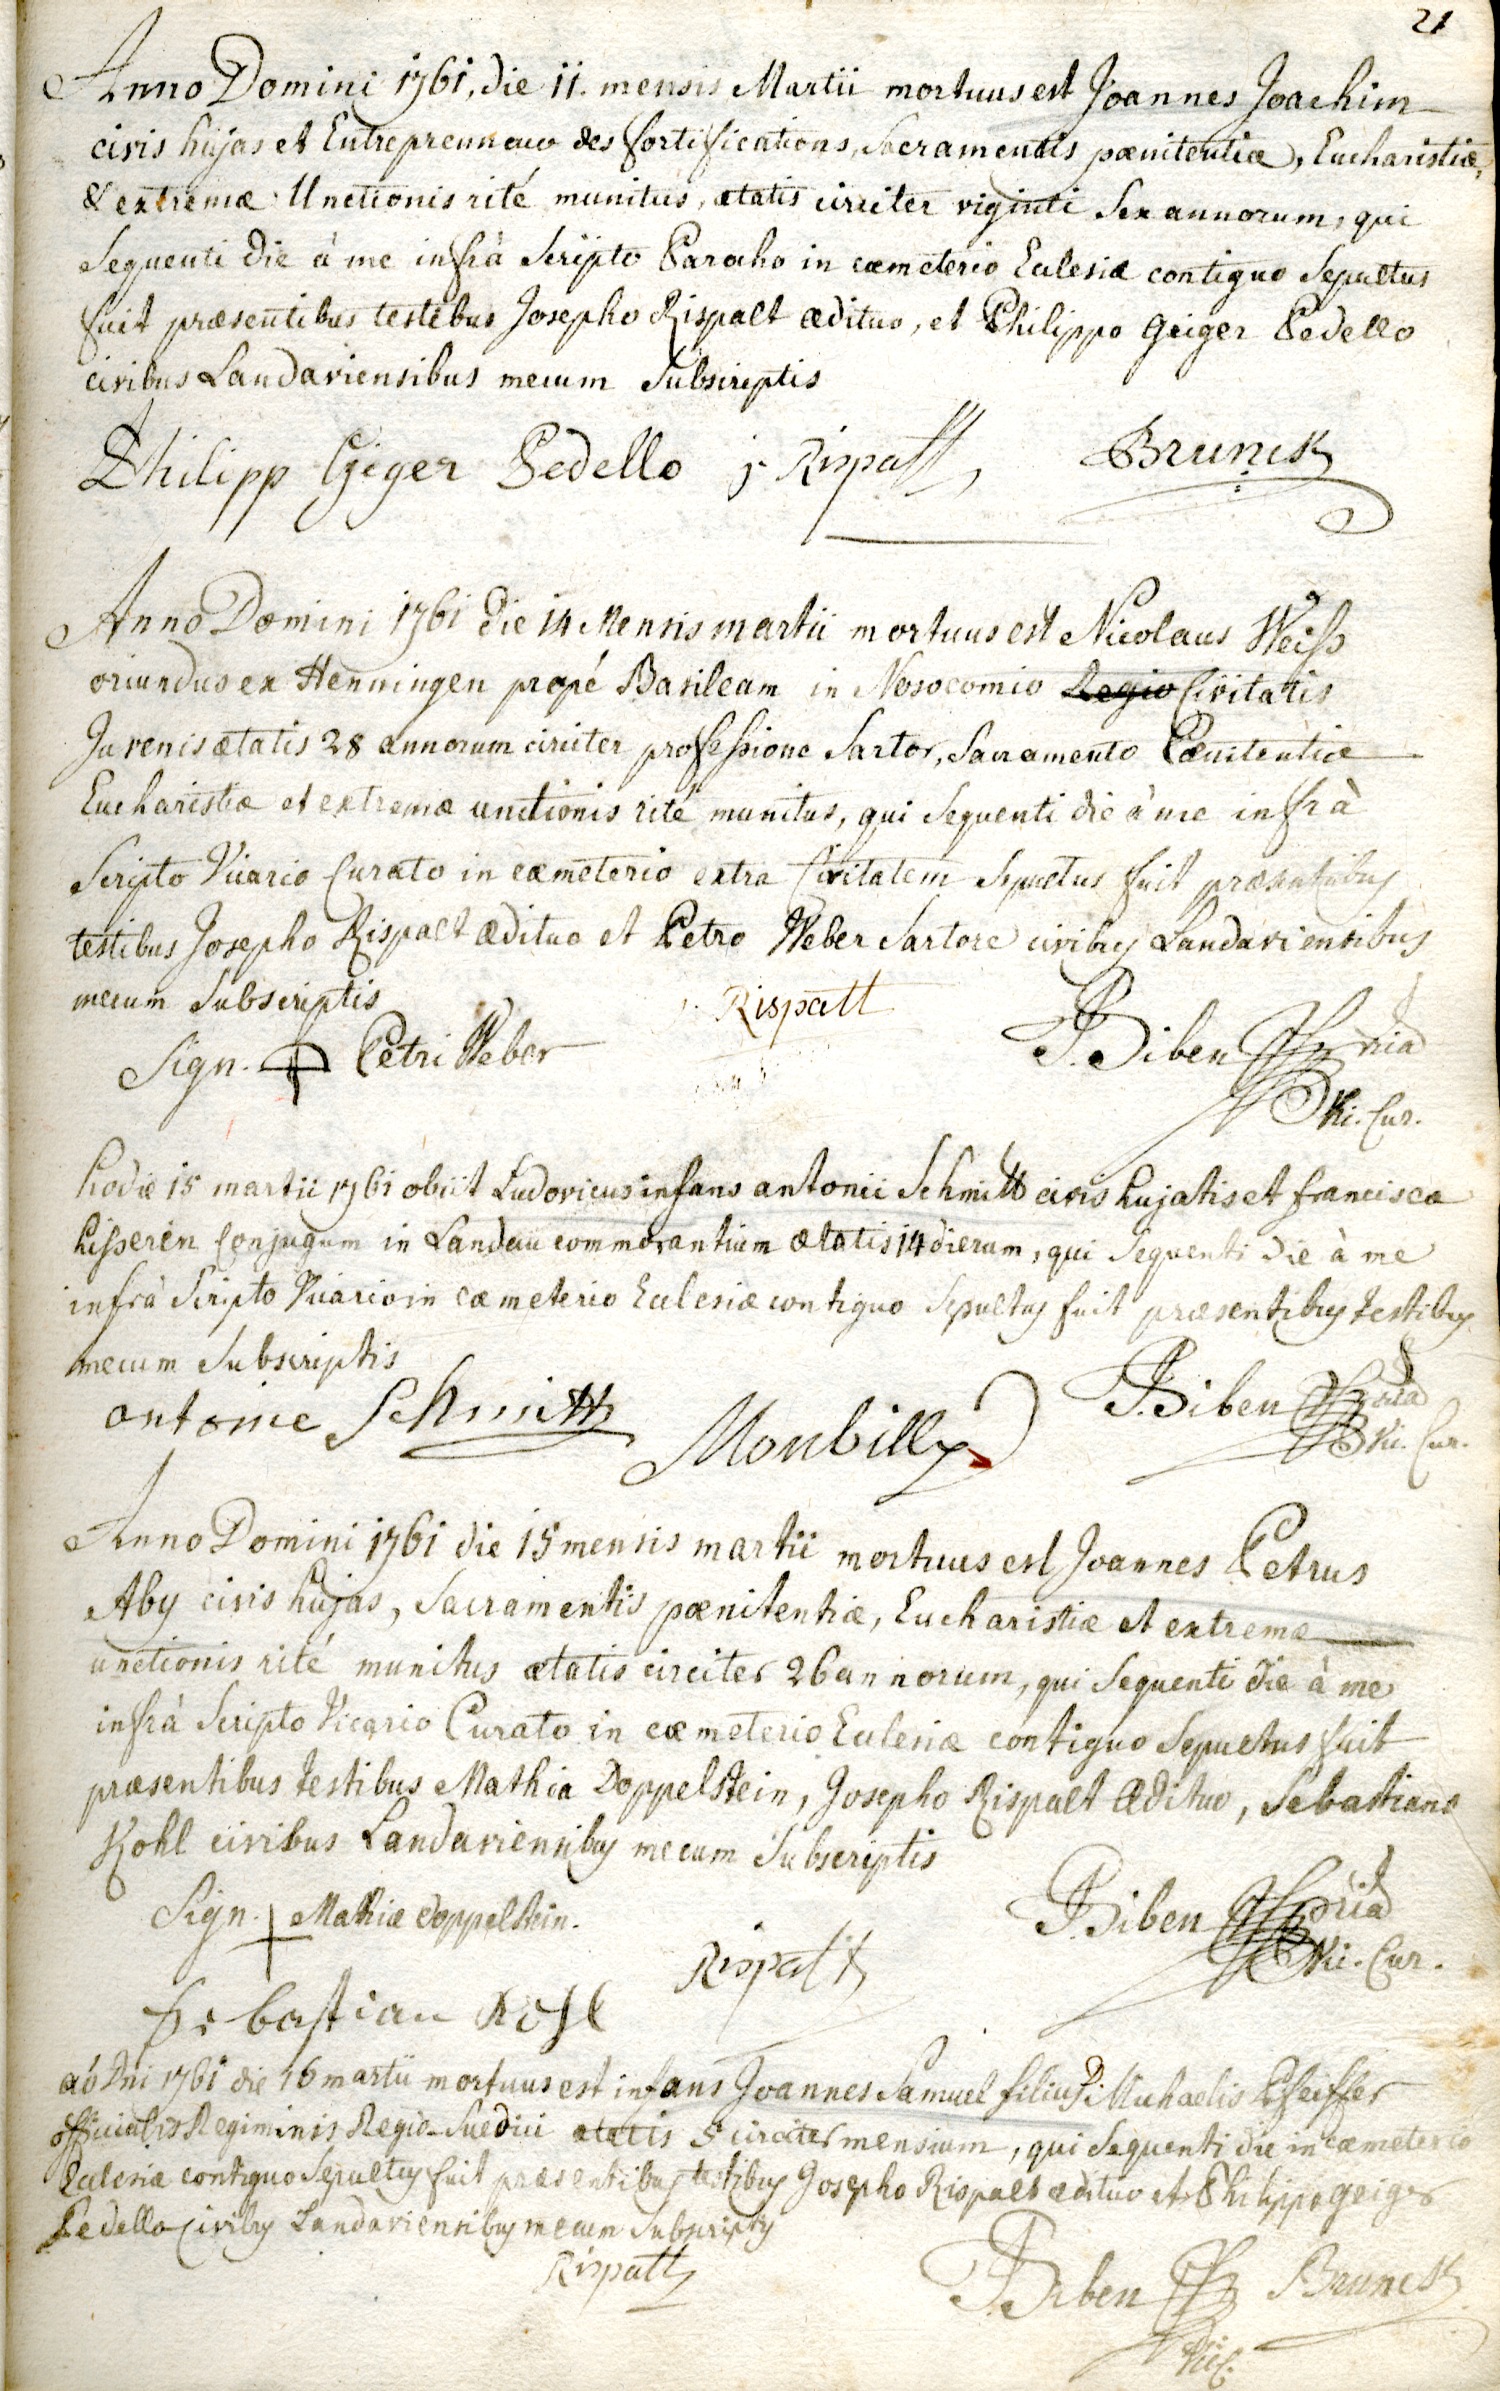 21
Anno Domini 1761, die 11. mensis Martii mortuus est Joannes Joachim
civis hujas et Entreprenneur des fortifications, Sacramentis pœnitentiæ, Eucharistiæ,
& extremæ Unctionis rité munitus, ætatis circiter viginti sex annorum, qui
sequenti die à me infrà scripto Parocho in cœmeterio Eclesiæ contiguo sepultus
fuit præsentibus testibus Josepho Rispalt ædituo, et Philippo Geiger Pedello
civibus Landaviensibus mecum subscriptis
Philipp Geger Pedello j. Rispatt Brunck
Anno Domini 1761 die 14 Mensis martii mortuus est Nicolaus Weiss
oriundus ex Henningen propé Basileam in Nosocomio Regio Civitatis
Juvenis ætatis 28 annorum circiter professione Sartor, Sacramento Pœnitentiæ
Eucharistiæ et extremæ unctionis rité munitus, qui sequenti die à me infrà
scripto Vicario Curato in cœmeterio extra Civitatem sepultus fuit præsentibus
testibus Josepho Rispalt ædituo et Petro Weber Sartore civibus Landaviensibus
mecum subscriptis
Rispatt
Sign. Petri Weber P. Biben
Vic. Cur.
hodie 15 martii 1761 obiit Ludovicus infans antonii Schmitt civis hujatis et francisca
hisserin Conjugum in Landau commorantium ætatis 14 dierum, qui sequenti die à me
infrà scripto Vicario in cœmeterio Eclesiæ contiguo sepultus fuit præsentibus testibus
mecum subscriptis
antoine Schmitt Monbilly P. Biben
Vic. Cur.
Anno Domini 1761 die 15 mensis martii mortuus est Joannes Petrus
Aby civis hujas, Sacramentis pœnitentiæ, Eucharistiæ et extremæ
unctionis rité munitus ætatis circiter 26 annorum, qui sequenti die à me
infrà scripto Vicario Curato in cœmeterio Eclesiæ contiguo sepultus fuit
præsentibus testibus Mathia Doppelstein, Josepho Rispalt Ædituo, Sebastiano
Kohl civibus Landaviensibus mecum subscriptis
Sign. Mathiæ doppelstein.
Rispatt P. Biben
Vic. Cur.
Sebastian Kohl
aõ Dni 1761 die 16 martii mortuus est infans Joannes Samuel filius Michaelis Pfeiffer
officialis Regiminis Regio-Suedici ætatis 5 circiter mensium, qui sequenti die in cœmeterio
Eclesiæ contiguo sepultus fuit præsentibus testibus Josepho Rispalt ædituo et Philippo geiger
Pedello Civibus Landaviensibus mecum subscriptis
Rispatt P. Biben Brunck
Vic.